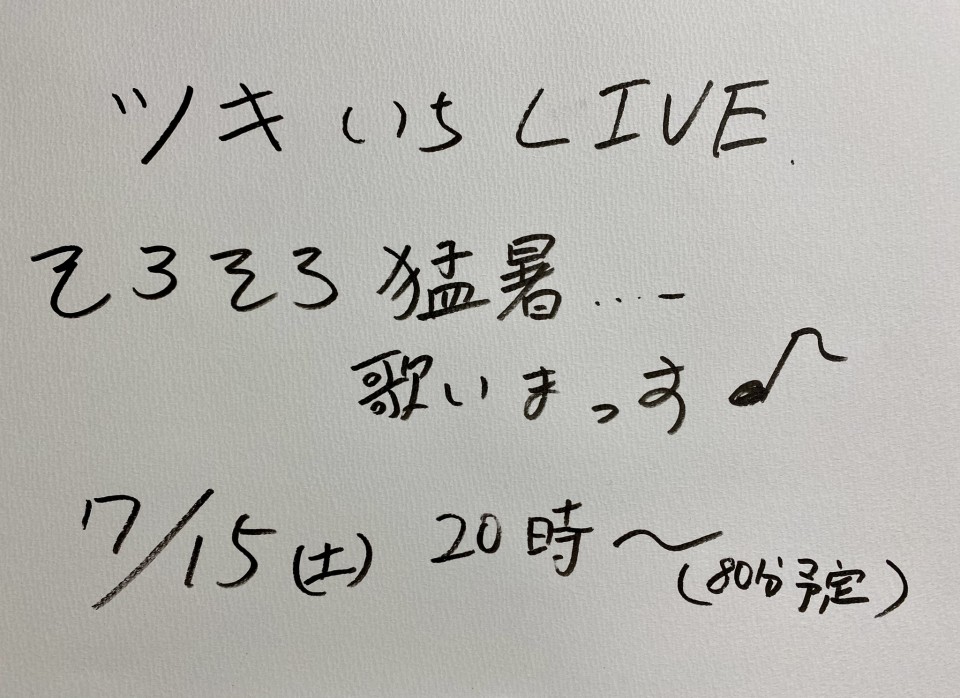 ツキいちLIVE
そろそろ猛暑…ー
歌いまっす♪
7/15(土) 20時〜
(80分予定)